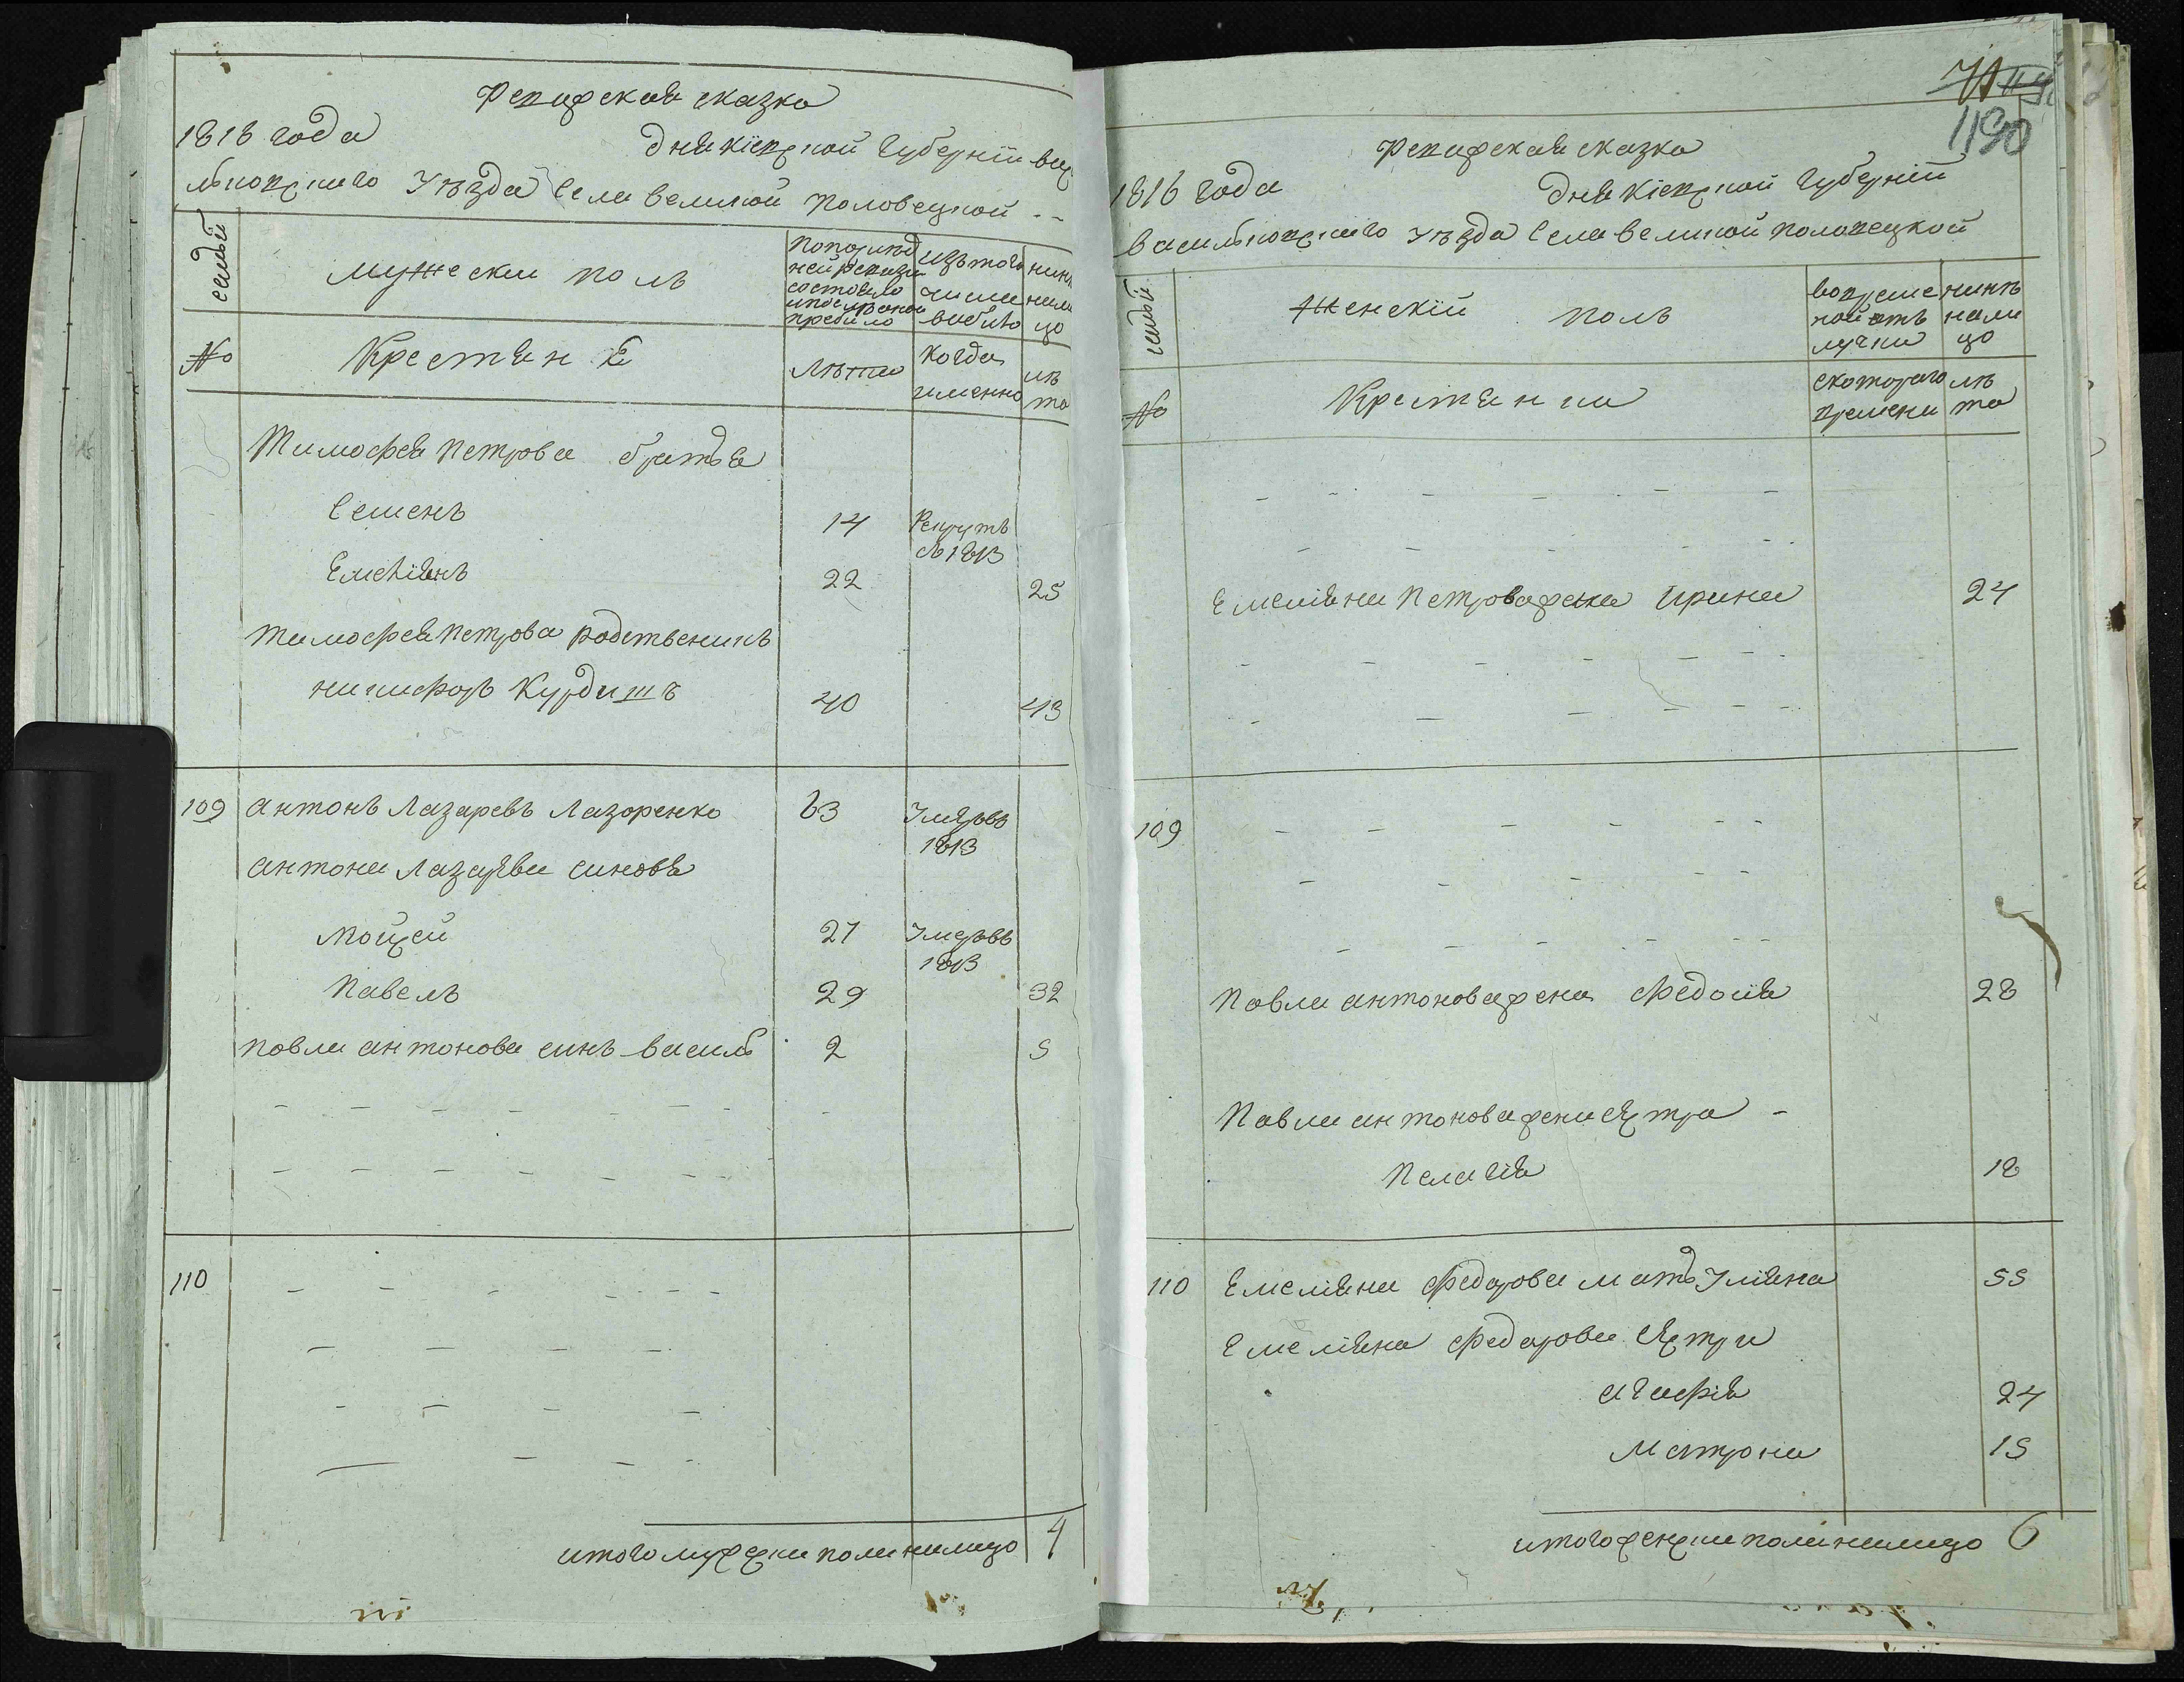 Ревизская сказка
1816 года дня Кіевской Губерніи Вас
ильковскаго Уезда Села Великой Половецкой
семьи
Мужески полъ
По послед
ней ревизи
состояло
и после оной
прибило
изъ того
числа
выбило
нине
нали
цо
№
Крестяне
Лета
когда
именно
ле
та
Тимофея Петрова братья
Семенъ 14 Рекрутъ
в 1813
Емеліянъ 22 25
Тимофея Петрова родственикъ
никифоръ Курдишъ 40 43
109 Антонъ Лазаревъ Лазоренко 63 Умеръ въ
1813
Антона Лазарева синовя
Мойсей 27 Умеръ въ
1813
Павелъ 29 32
Повла Антонова синъ Василь 2 5
110
итого мужска пола налицо 4
71
1190
Ревизская сказка
1816 года дня Кіевской Губерніи
Васильковскаго Уезда Села Великой Половецкой
семьи
Женскій полъ
во време
ной отъ
лучки
нине
нали
цо
№
Крестяни
с котораго
времени
ле
та
Емеліяна Петрова жена Ирина 24
109
Повла Антонова жена Федосія 28
Павла Антонова жени сестра
Пелагія 18
110 Емеліяна Федорова мать Уліяна 55
Емеліяна Федорова сестри
Агафія 24
Матрона 15
итого женска пола налицо 6